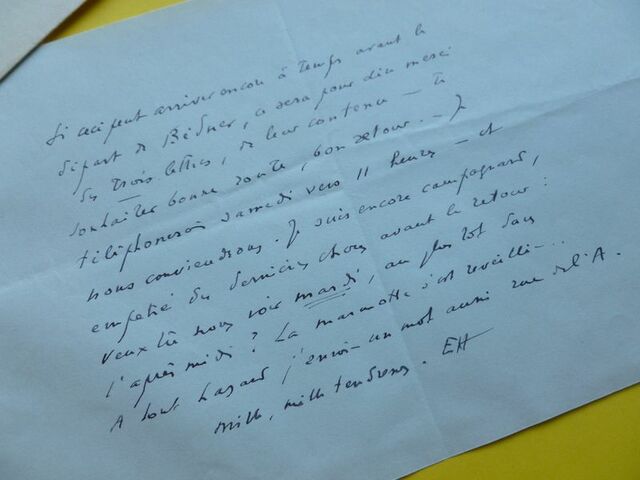 Si ceci peut arriver encore à temps avant le
départ de Bédner, ce sera pour dire merci
des trois lettres, de leur contenu – te
souhaiter bonne route, bon retour. – Je
téléphonerai samedi vers 11 heures – et
nous conviendrons. Je suis encore campagnard,
empêtré des dernières choses avant le retour :
veux-tu nous voir mardi, au plus tôt dans
l'après midi ? La marmotte s'est réveillée...
A tout hasard j'envoie un mot aussi rue de l'A.
Mille, mille tendresses. EH